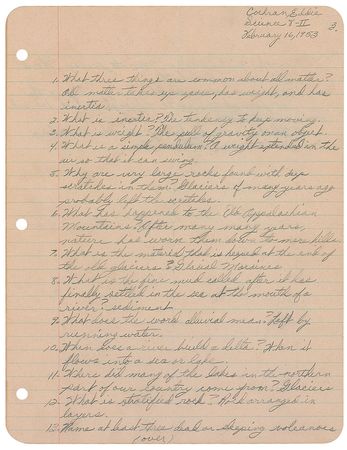 Cochran, Eddie
Science 8-II
February 16, 1953
3.
1. What three things are common about all matter?
All matter takes up space, has weight, and has
inertia.
2. What is inertia? The tendency to keep moving.
3. What is weight? The pull of gravity on an object.
4. What is a simple pendulum? A weight extended in the
air so that it can swing.
5. Why are very large rocks found with deep
scratches in them? Glaciers of many years ago
probably left the scratches.
6. What has happened to the Old Appalachian
Mountains? After many many years,
nature has worn them down to mere hills.
7. What is the material that is heaped at the end of
the old glaciers? Glacial Moraines
8. What is the fine mud called after it has
finally settled in the sea at the mouth of a
river? sediment
9. What does the word alluvial mean? Left by
running water.
10. When does a river build a delta? When it
flows into a sea or lake.
11. Where did many of the lakes in the northern
part of our country come from? Glaciers
12. What is stratified rock? Rock arranged in
layers.
13. Name at least three dead or sleeping volcanoes
(over)